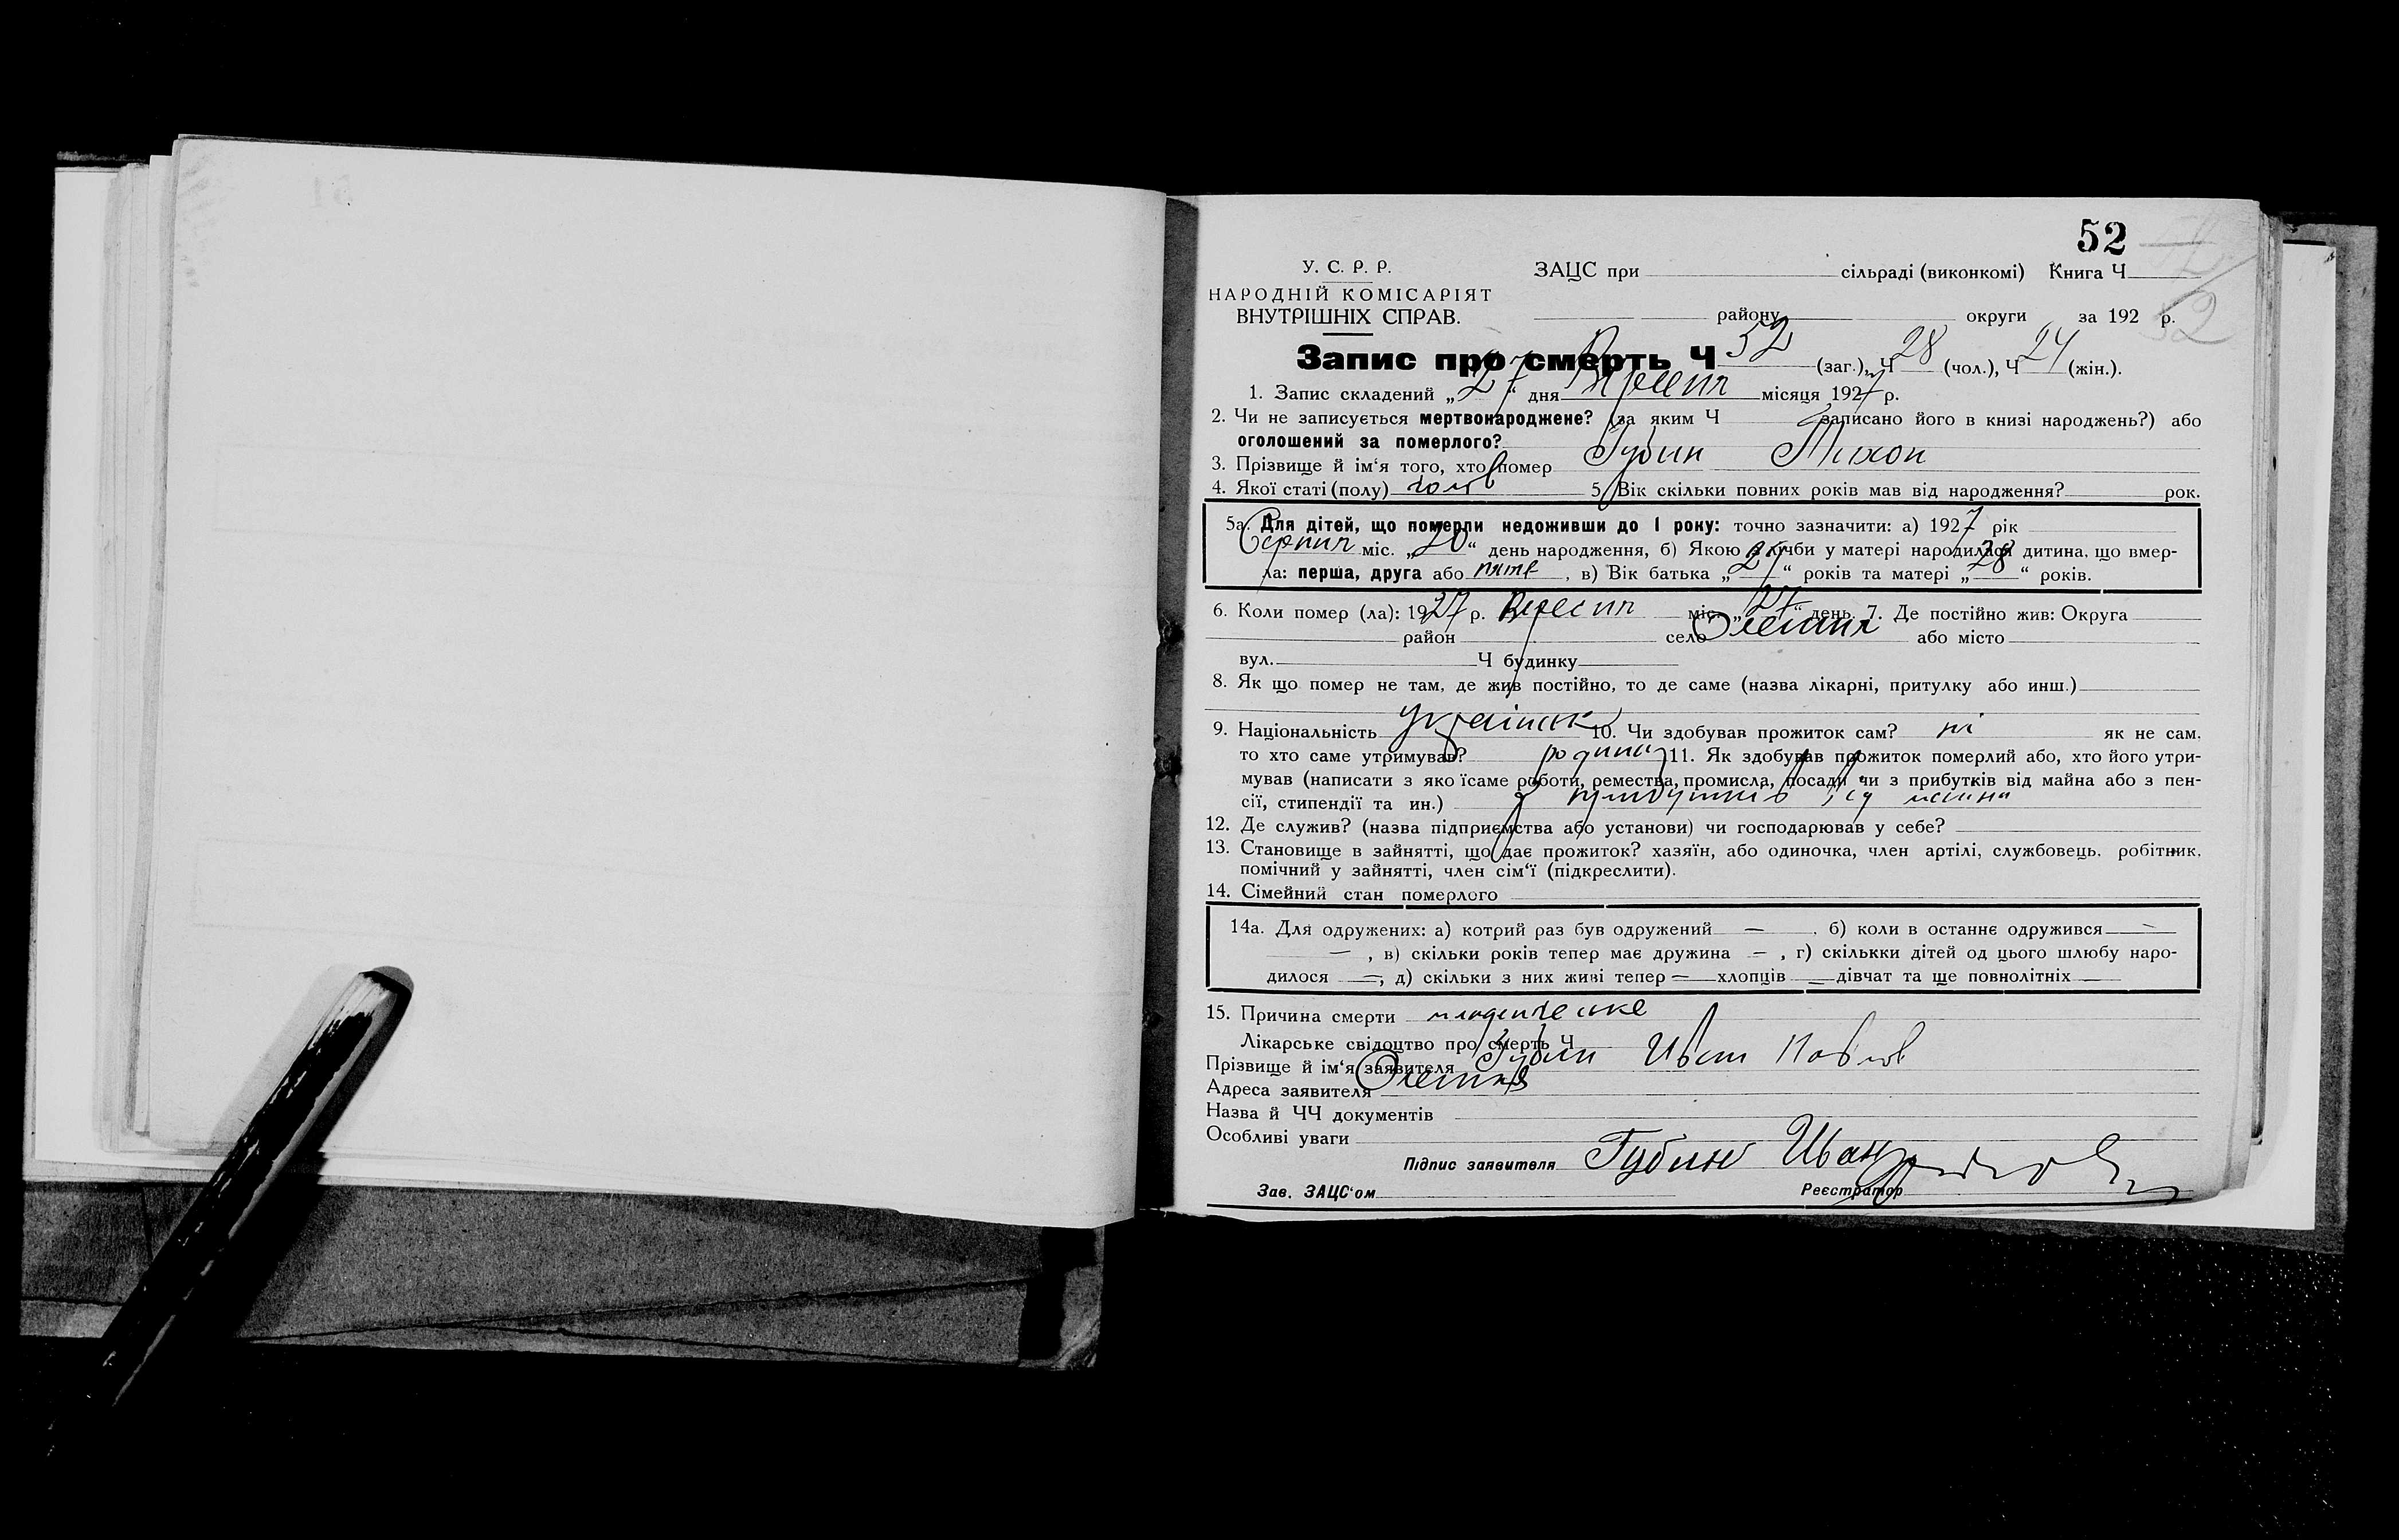 52
52
У. С. Р. Р.
ЗАЦС при сільраді (виконкомі) Книга Ч
НАРОДНІЙ КОМІСАРІЯТ
ВНУТРІШНІХ СПРАВ.
району округи за 192 р.
Запис про смерть Ч 52 (заг.), Ч 28 (чол.), Ч 24 (жін.).
1. Запис складений „27“ дня Вересня місяця 1927 р.
2. Чи не записується мертвонароджене? (за яким Ч записано його в книзі народжень?) або
оголошений за померлого?
3. Прізвище й ім‘я того, хто помер Губин Тихон
4. Якої статі (полу) чолов 5. Вік скільки повних років мав від народження? рок.
5а. Для дітей, що померли недоживши до 1 року: точно зазначити: а) 1927 рік
Серпня міс. „20“ день народження, б) Якою з лучби у матері народилася дитина, що вмер-
ла: перша, друга або пяте, в) Вік батька „ “ років та матері „28“ років.
6. Коли помер (ла): 1927 р. Вересня міс. „27“ день. 7. Де постійно жив: Округа
район село або місто
вул. Ч будинку
8. Як що помер не там, де жив постійно, то де саме (назва лікарні, притулку або инш.)
9. Національність українск 10. Чи здобував прожиток сам? ні як не сам,
то хто саме утримував? родина 11. Як здобував прожиток померлий або, хто його утри-
мував (написати з яко їсаме роботи, ремества, промисла, посади чи з прибутків від майна або з пен-
сії, стипендії та ин.) з прибутків від майна
12. Де служив? (назва підприємства або установи) чи господарював у себе?
13. Становище в зайнятті, що дає прожиток? хазяїн, або одиночка, член артілі, службовець, робітник,
помічний у зайнятті, член сім‘ї (підкреслити).
14. Сімейний стан померлого
14а. Для одружених: а) котрий раз був одружений — . б) коли в останнє одружився —
— , в) скільки років тепер має дружина — , г) скількки дітей од цього шлюбу наро-
дилося —, д) скільки з них живі тепер — хлопців — дівчат та ще повнолітніх
15. Причина смерти младенческе
Лікарське свідоцтво про смерть Ч
Прізвище й ім‘я заявителя Губин Иван Павлов
Адреса заявителя
Назва й ЧЧ документів
Особливі уваги
Підпис заявителя Губин Иван
Зав. ЗАЦС‘ом Реєстратор